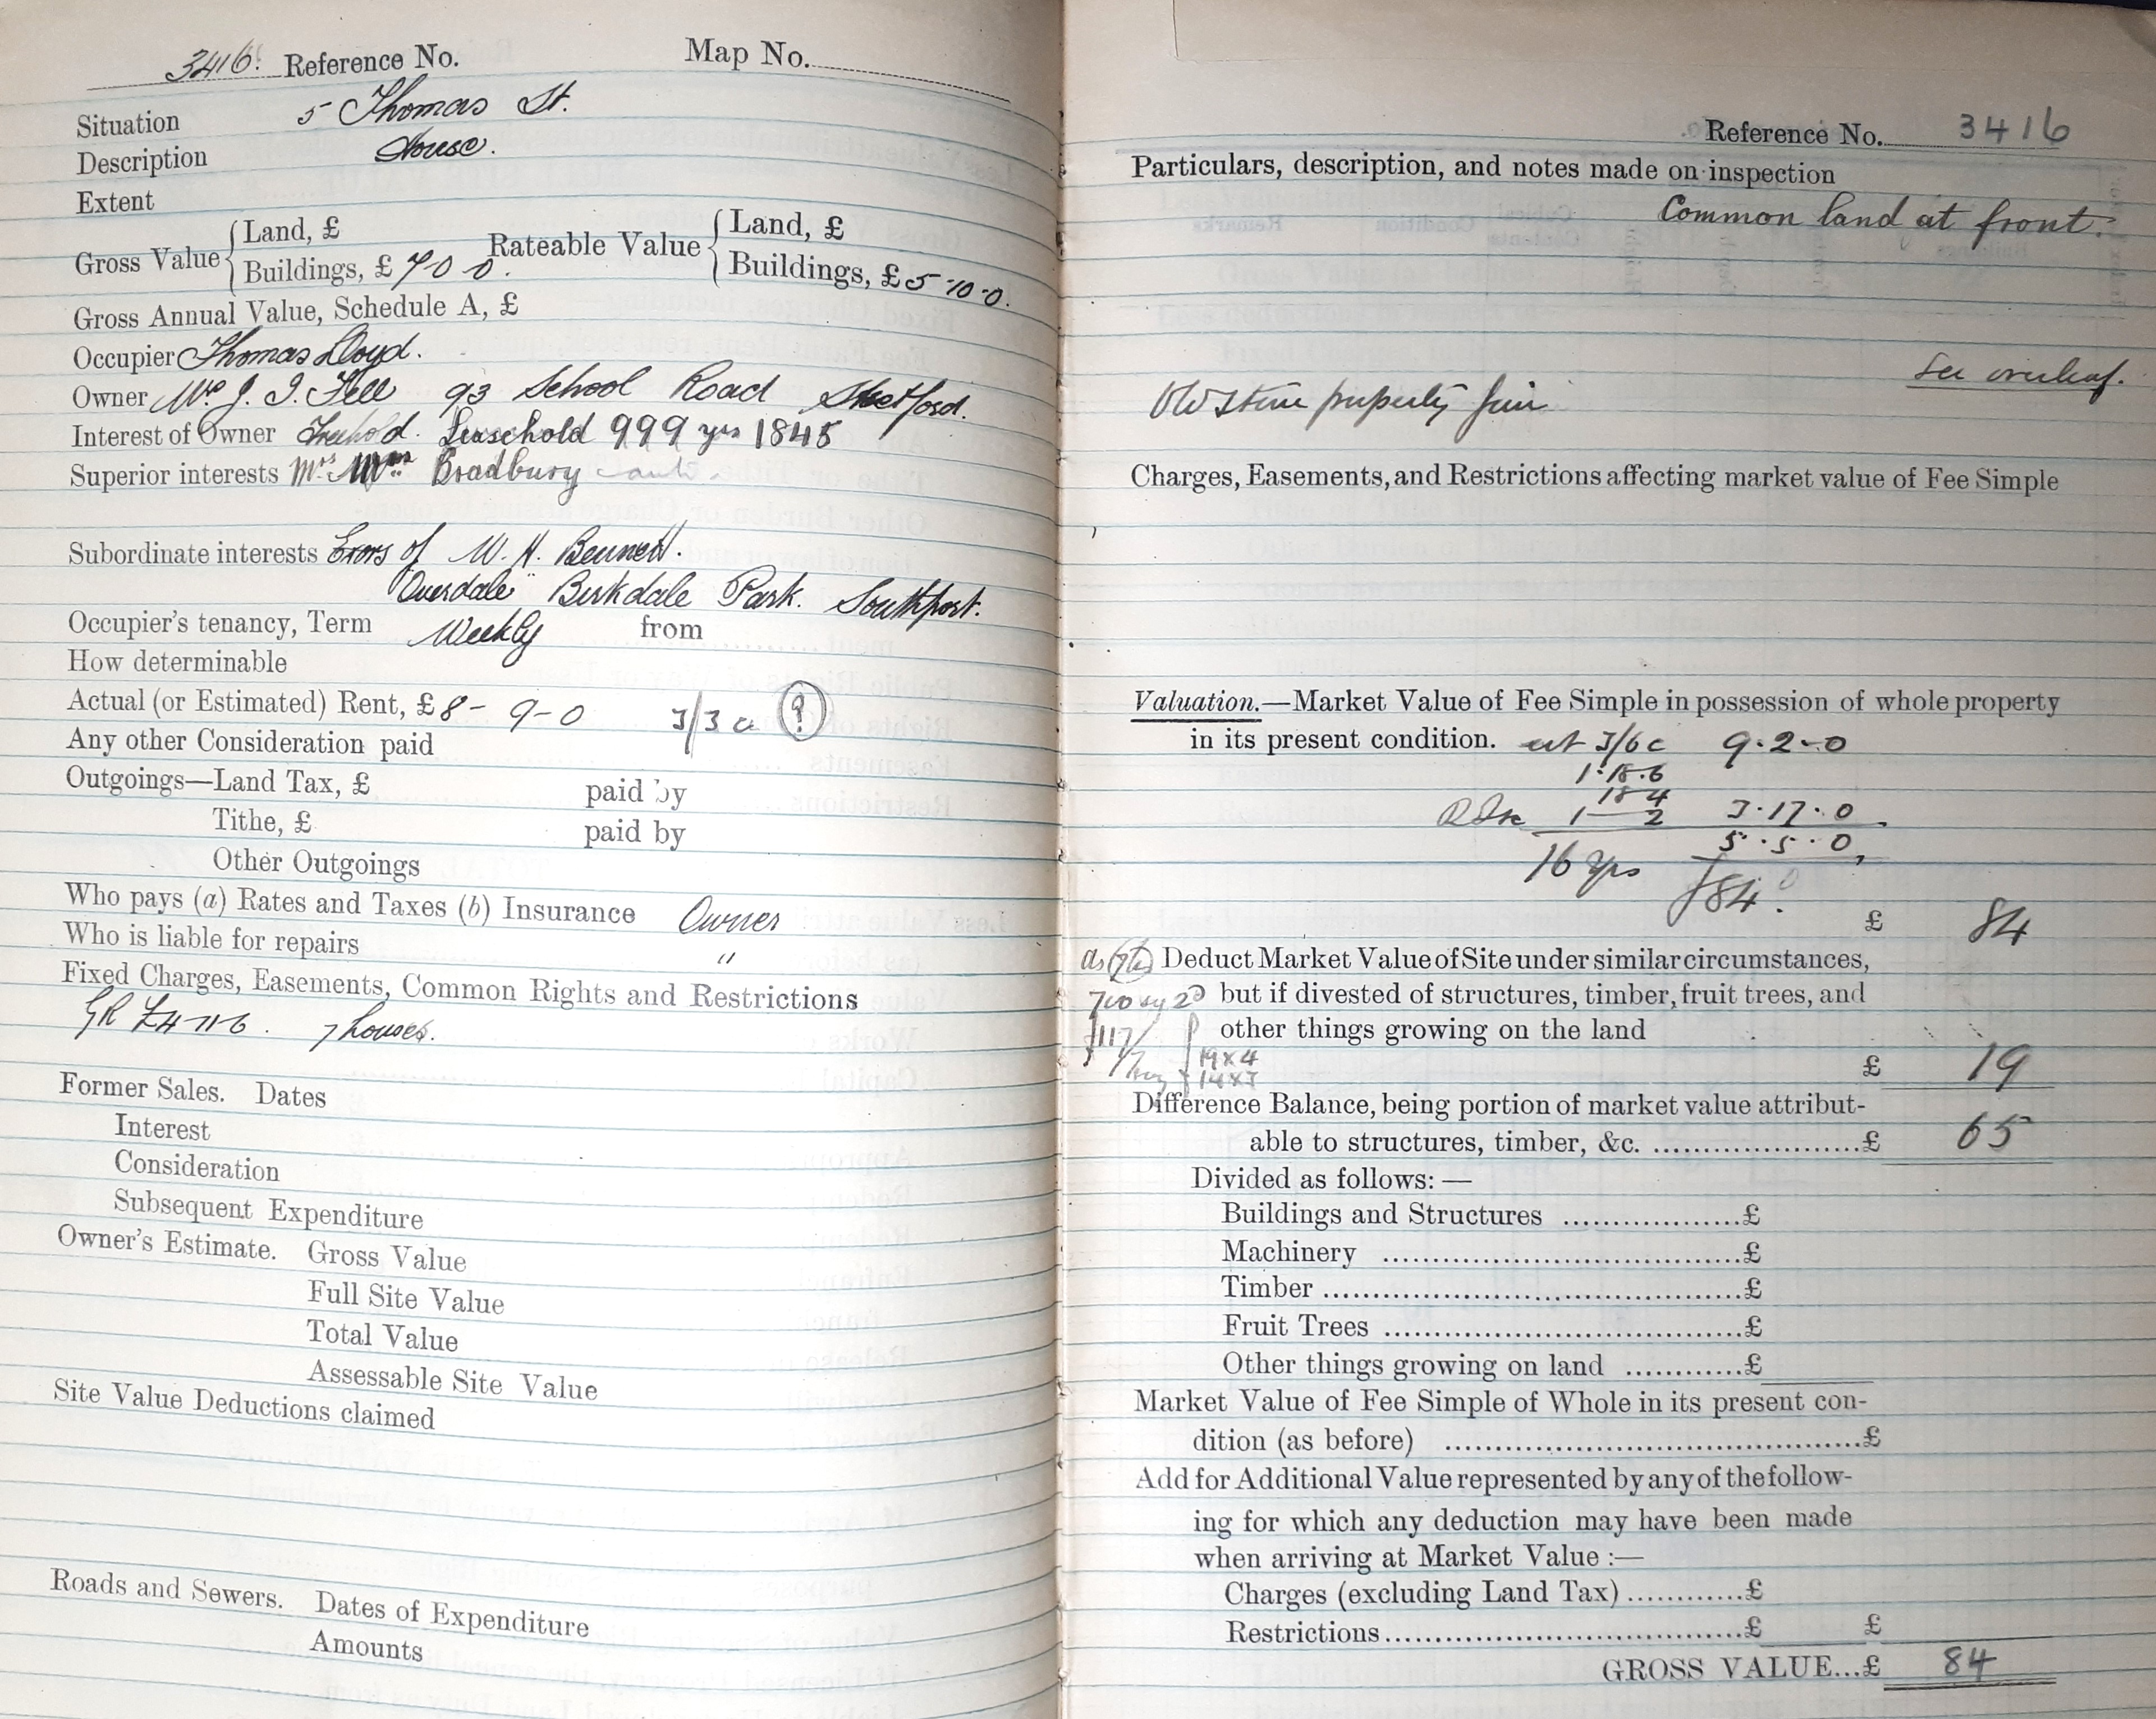 3416. Reference No. Map No.
Situation 5 Thomas St.
Description House.
Extent
Gross Value { Land, £ Rateable Value { Land, £
Buildings, £ 7 0 0. Buildings, £ 5-10-0.
Gross Annual Value, Schedule A, £
Occupier Thomas Lloyd.
Owner J. I. Fell 93 School Road
Interest of Owner Freehold. Leasehold 999 yrs 1845
Superior interests Mrs Wm Bradbury
Subordinate interests Exors of W. H. Bennett.
"Overdale" Birkdale Park. Southport.
Occupier's tenancy, Term Weekly from
How determinable
Actual (or Estimated) Rent, £ 8 - 9 - 0 3/3 a ?
Any other Consideration paid
Outgoings—Land Tax, £ paid by
Tithe, £ paid by
Other Outgoings
Who pays (a) Rates and Taxes (b) Insurance Owner
Who is liable for repairs "
Fixed Charges, Easements, Common Rights and Restrictions
GR £4-11-6. 7 houses.
Former Sales. Dates
Interest
Consideration
Subsequent Expenditure
Owner's Estimate. Gross Value
Full Site Value
Total Value
Assessable Site Value
Site Value Deductions claimed
Roads and Sewers. Dates of Expenditure
Amounts
Reference No. 3416
Particulars, description, and notes made on inspection
Common land at front.
See overleaf.
Old stone property fair
Charges, Easements, and Restrictions affecting market value of Fee Simple
Valuation.—Market Value of Fee Simple in possession of whole property
in its present condition. at 3/6 c 9-2-0
1.18.6
18 4
1 — 2 3.17.0
5.5.0
16 yrs £84.
£ 84
Deduct Market Value of Site under similar circumstances,
but if divested of structures, timber, fruit trees, and
other things growing on the land
19 x 4
14 x 3
£ 19
Difference Balance, being portion of market value attribut-
able to structures, timber, &c. ......................£ 65
Divided as follows: —
Buildings and Structures ..................£
Machinery .....................................£
Timber ...........................................£
Fruit Trees .....................................£
Other things growing on land ...........£
Market Value of Fee Simple of Whole in its present con-
dition (as before) ...........................................£
Add for Additional Value represented by any of the follow-
ing for which any deduction may have been made
when arriving at Market Value :—
Charges (excluding Land Tax) ............£
Restrictions ....................................£ £
GROSS VALUE...£ 84